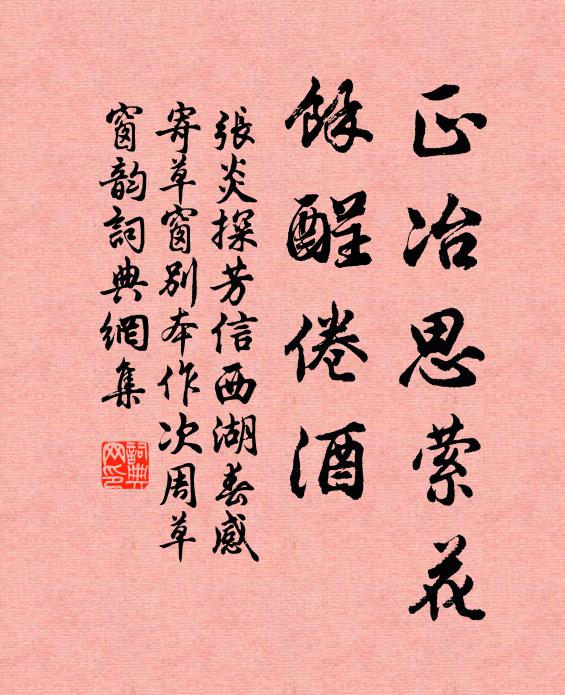 正冶思萦花
餘酲倦酒
張炎探芳信西湖春感
寄草窗別本作次周草
窗韵詞典網集
詞典网印